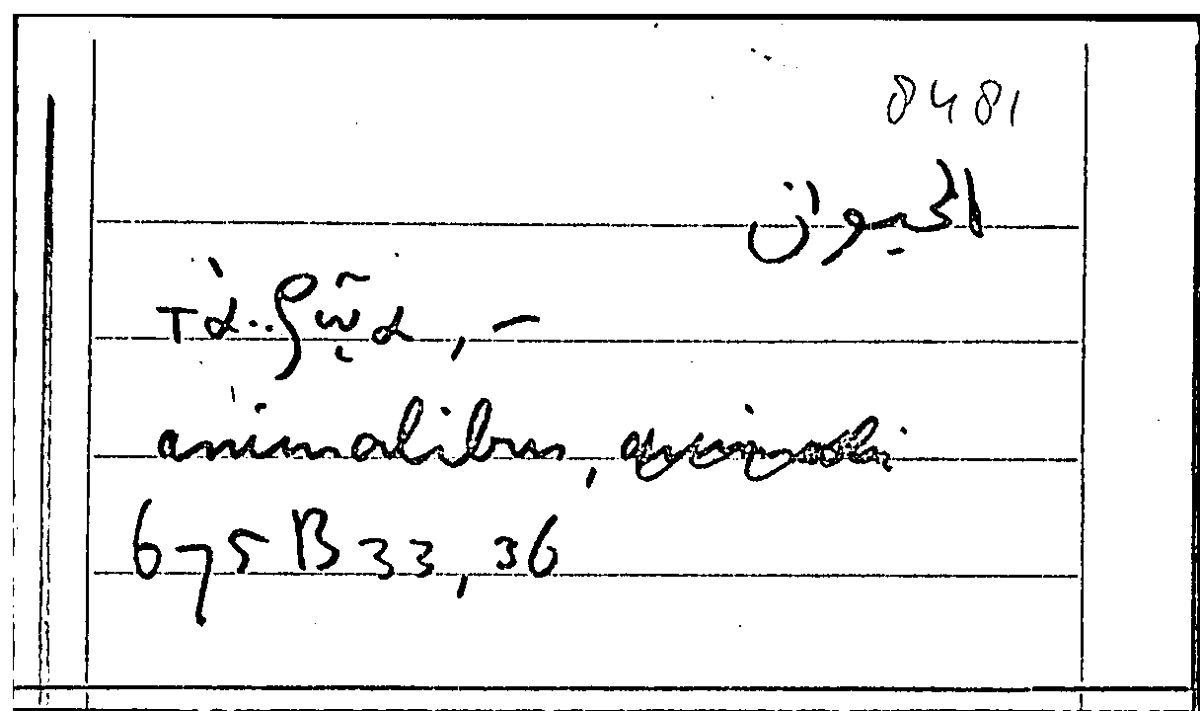 8481
الحيوان
τὰ..ζῷα, –
animalibus, animali
675 B 33, 36